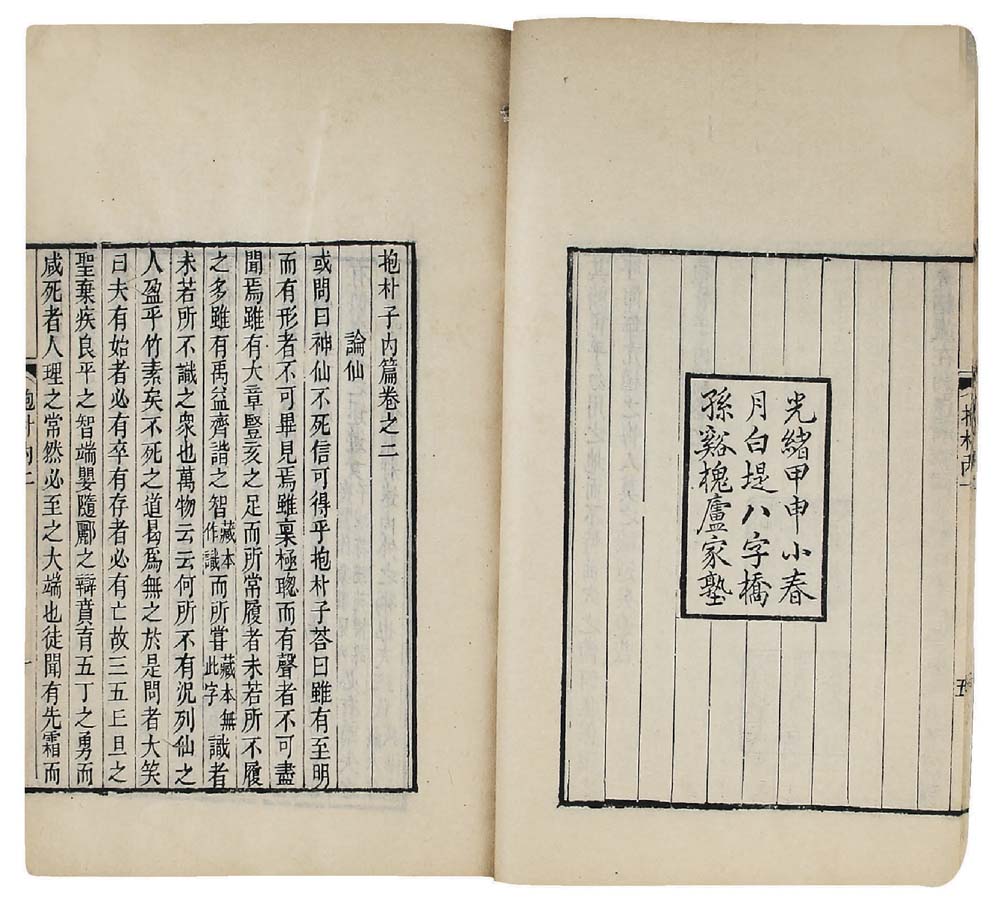 光緒甲申小春
月白堤八字橋
孫谿槐廬家塾
五
抱朴子內篇卷之二
論仙
或問曰神仙不死信可得乎抱朴子荅曰雖有至明
而有形者不可畢見焉雖稟極聰而有聲者不可盡
聞焉雖有大章豎亥之足而所常履者未若所不履
之多雖有禹益齊諧之智藏本作識而所嘗藏本無此字識者
未若所不識之衆也萬物云云何所不有況列仙之
人盈乎竹素矣不死之道曷爲無之於是問者大笑
曰夫有始者必有卒有存者必有亡故三五丘旦之
聖棄疾良平之智端嬰隨酈之辯賁育五丁之勇而
咸死者人理之常然必至之大端也徒聞有先霜而